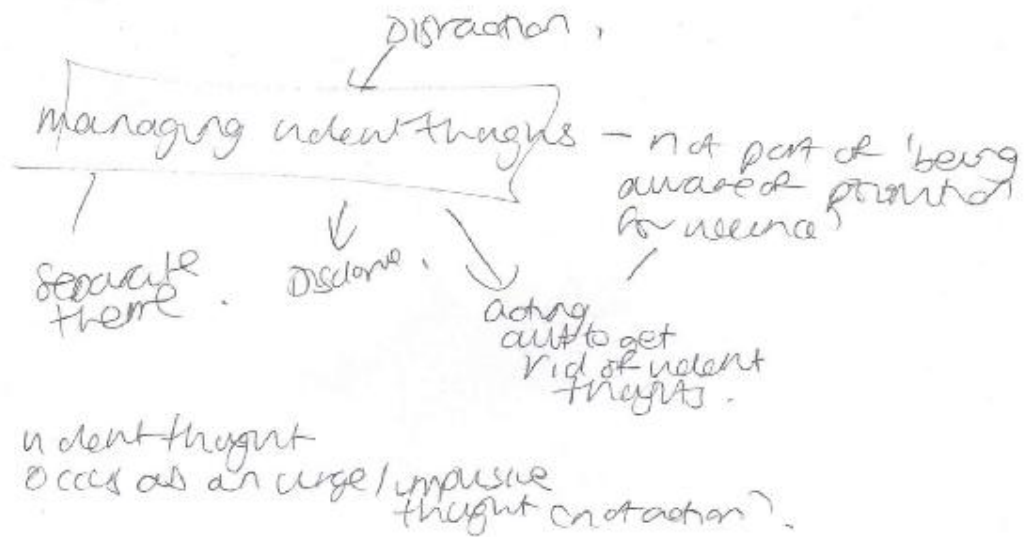 Distraction.
managing violent thoughts - not part of 'being
aware of potential
for violence'
separate
theme.
Disclosure.
acting
out to get
rid of violent
thoughts.
violent thought
occurs as an urge/impulsive
thought (not action).